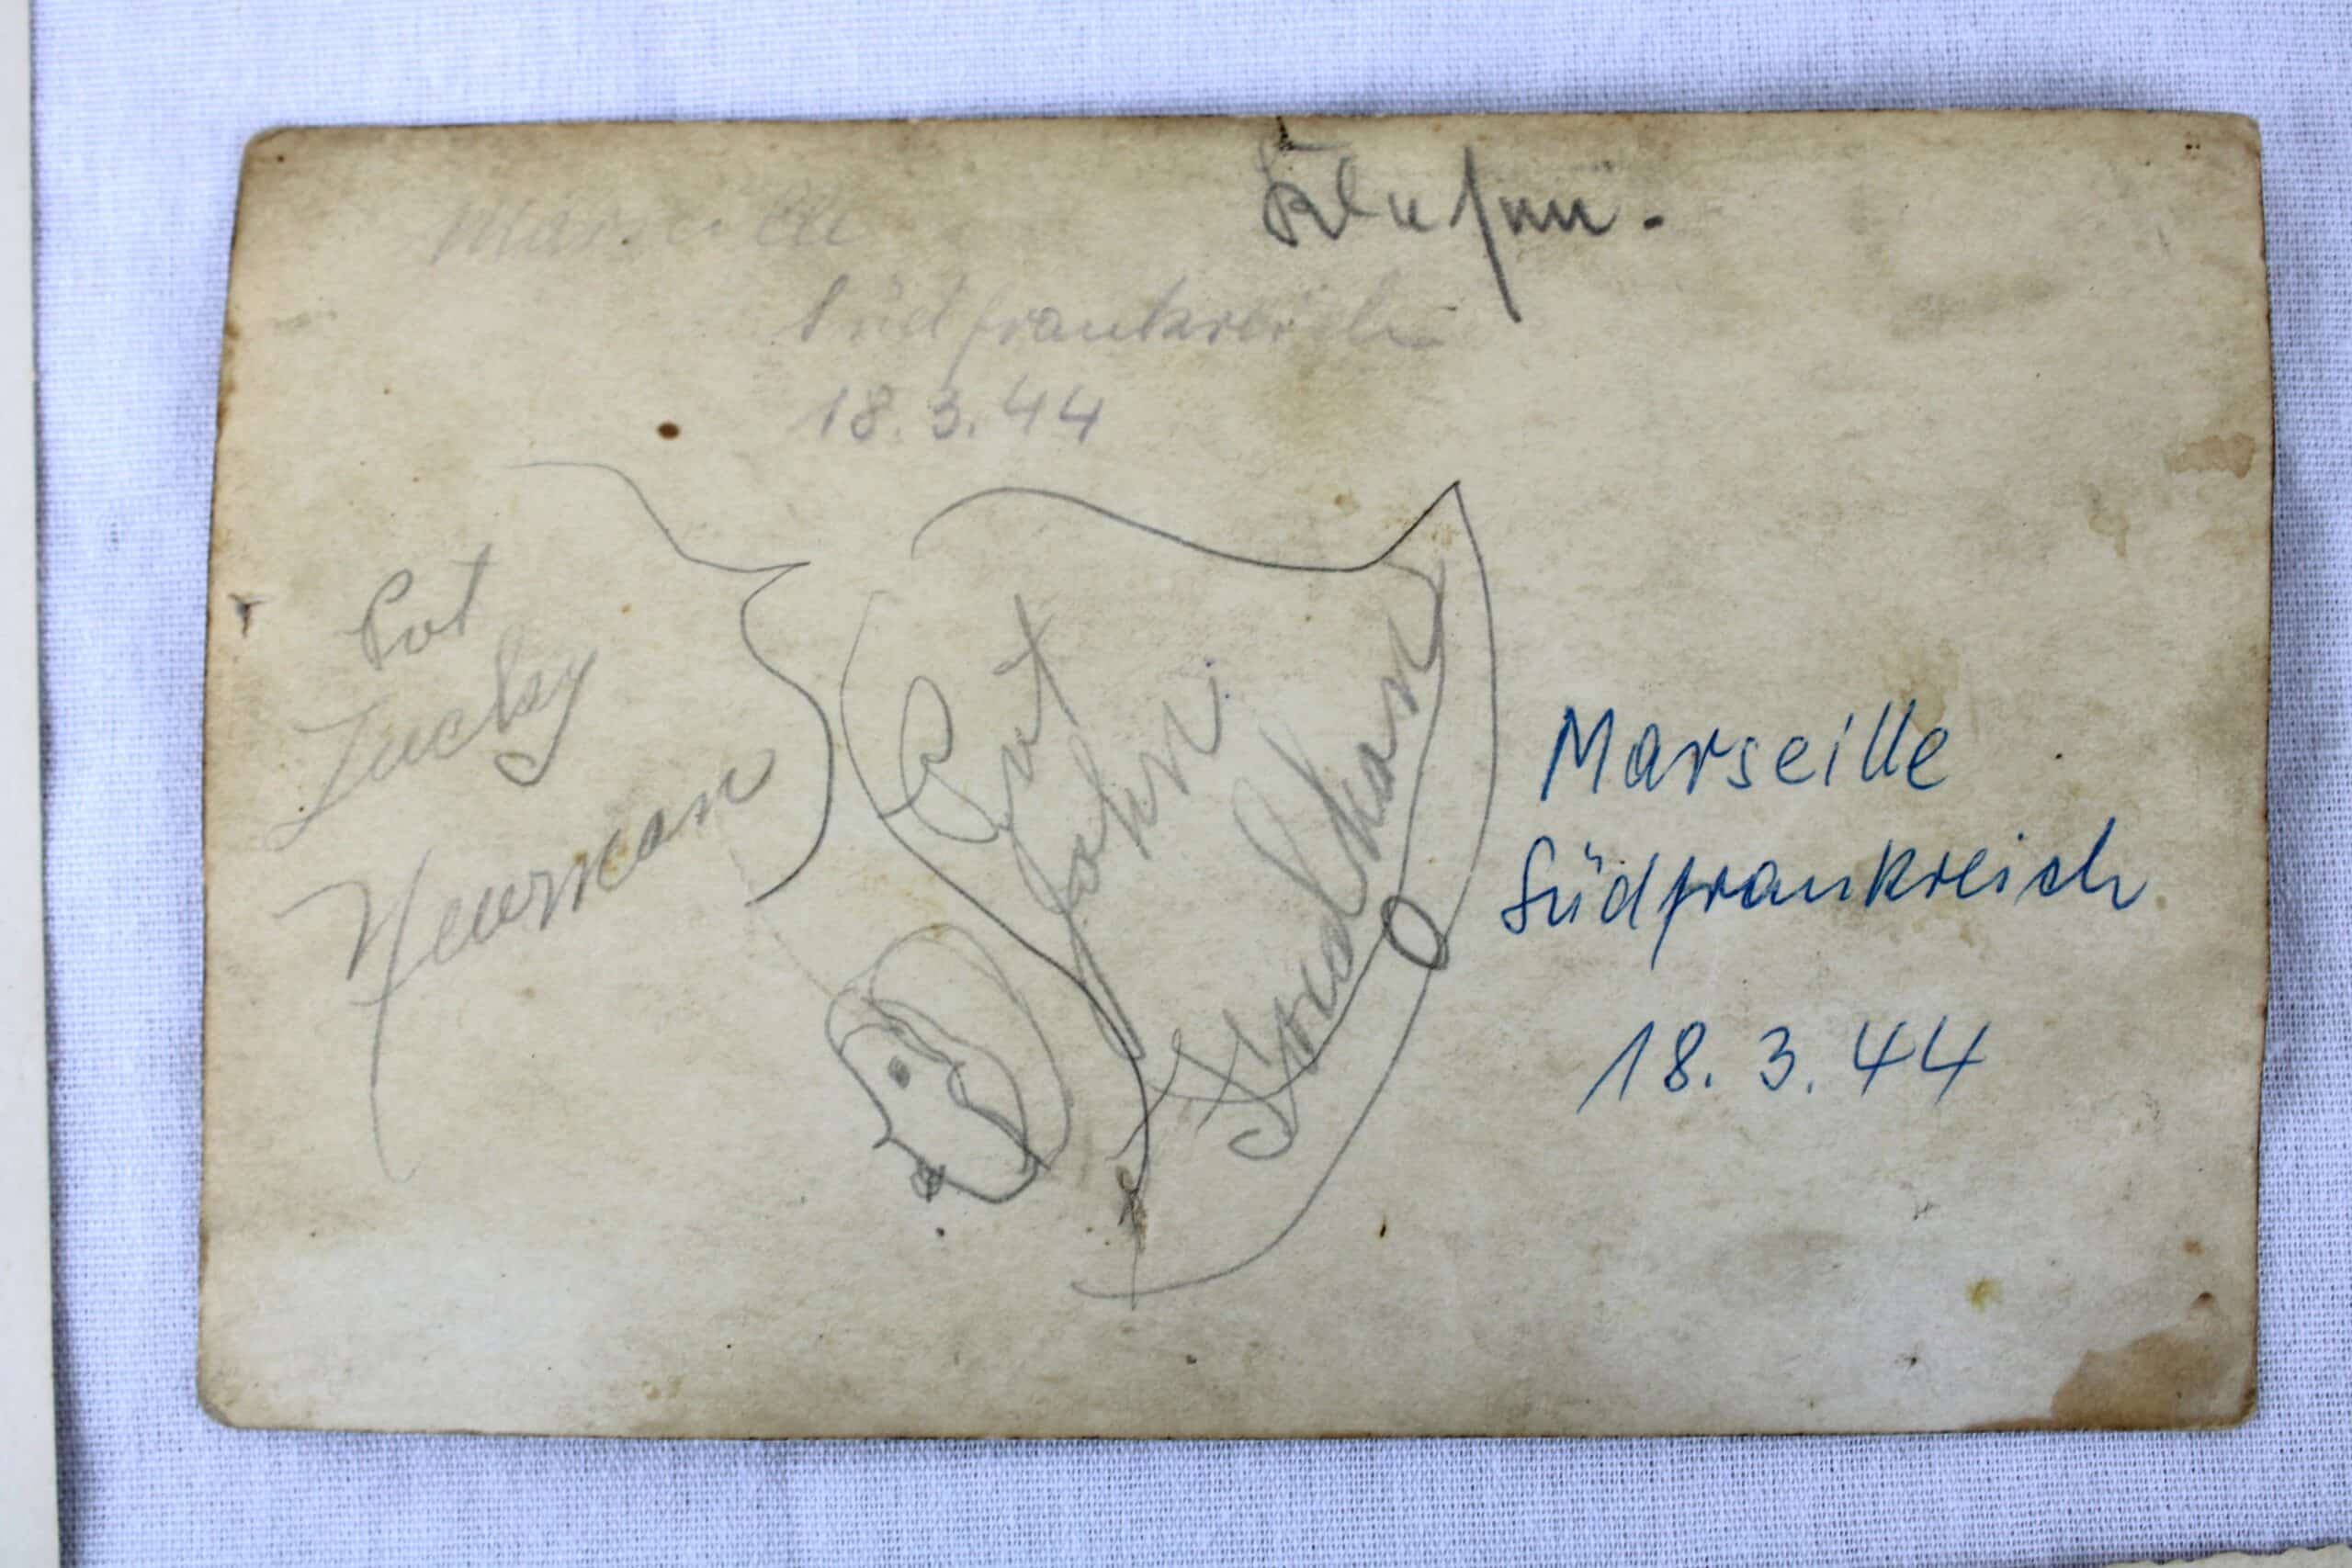 Marseille
Südfrankreich
18.3.44
Pvt
Lucky
Newman
Pvt
John
Marseille
Südfrankreich
18.3.44